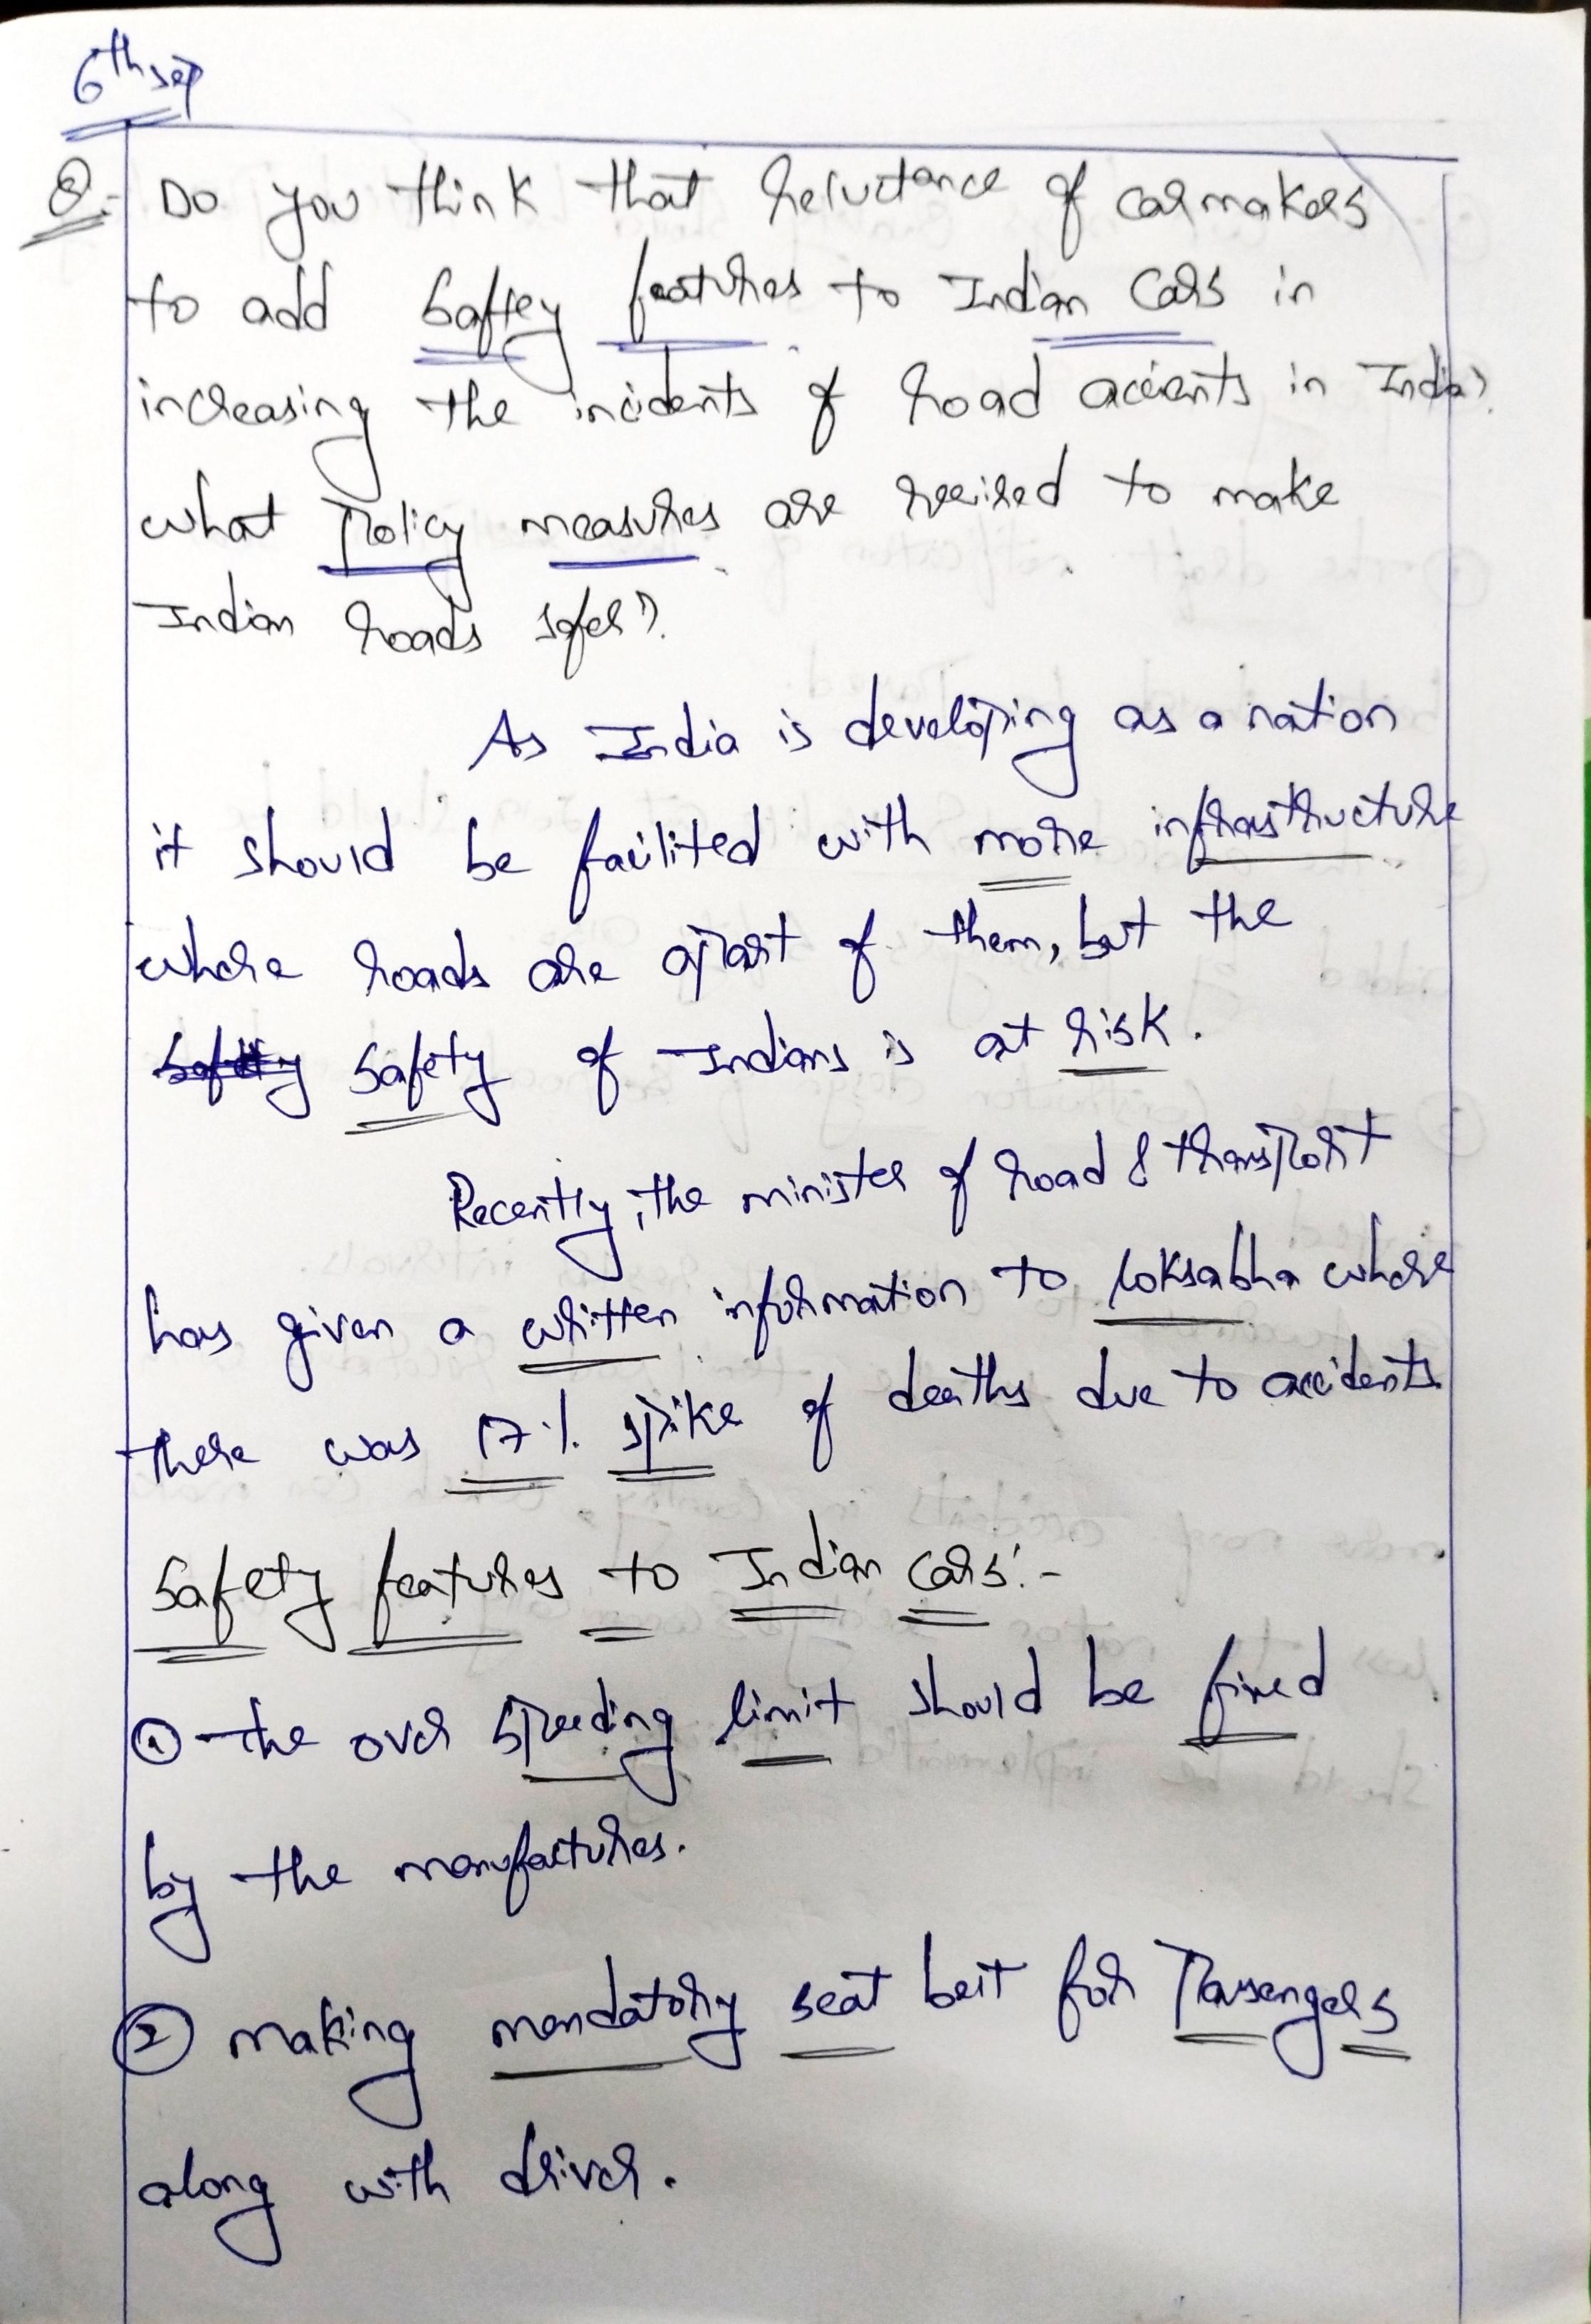 6th sep
Q.- Do you think that reluctance of carmakers
to add saftey features to Indian cars in
increasing the incidents of road accients in India?
what policy measures are reeired to make
Indian roads safer?
As India is developing as a nation
it should be facilited with more infrastructure
where roads are apart of them, but the
safety of Indians is at risk.
Recently, the minister of road & transport
has given a written information to loksabha where
there was 17% spike of deaths due to accidents
Safety features to Indian cars:-
① the over speeding limit should be fixed
by the manufactures.
② making mandatory seat belt for passengers
along with driver.